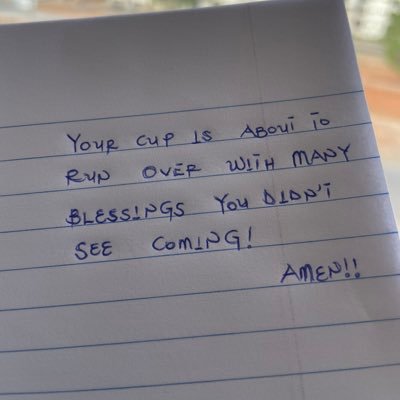 YOUR CUP IS ABOUT TO
RUN OVER WITH MANY
BLESSINGS YOU DIDN'T
SEE COMING!
AMEN!!